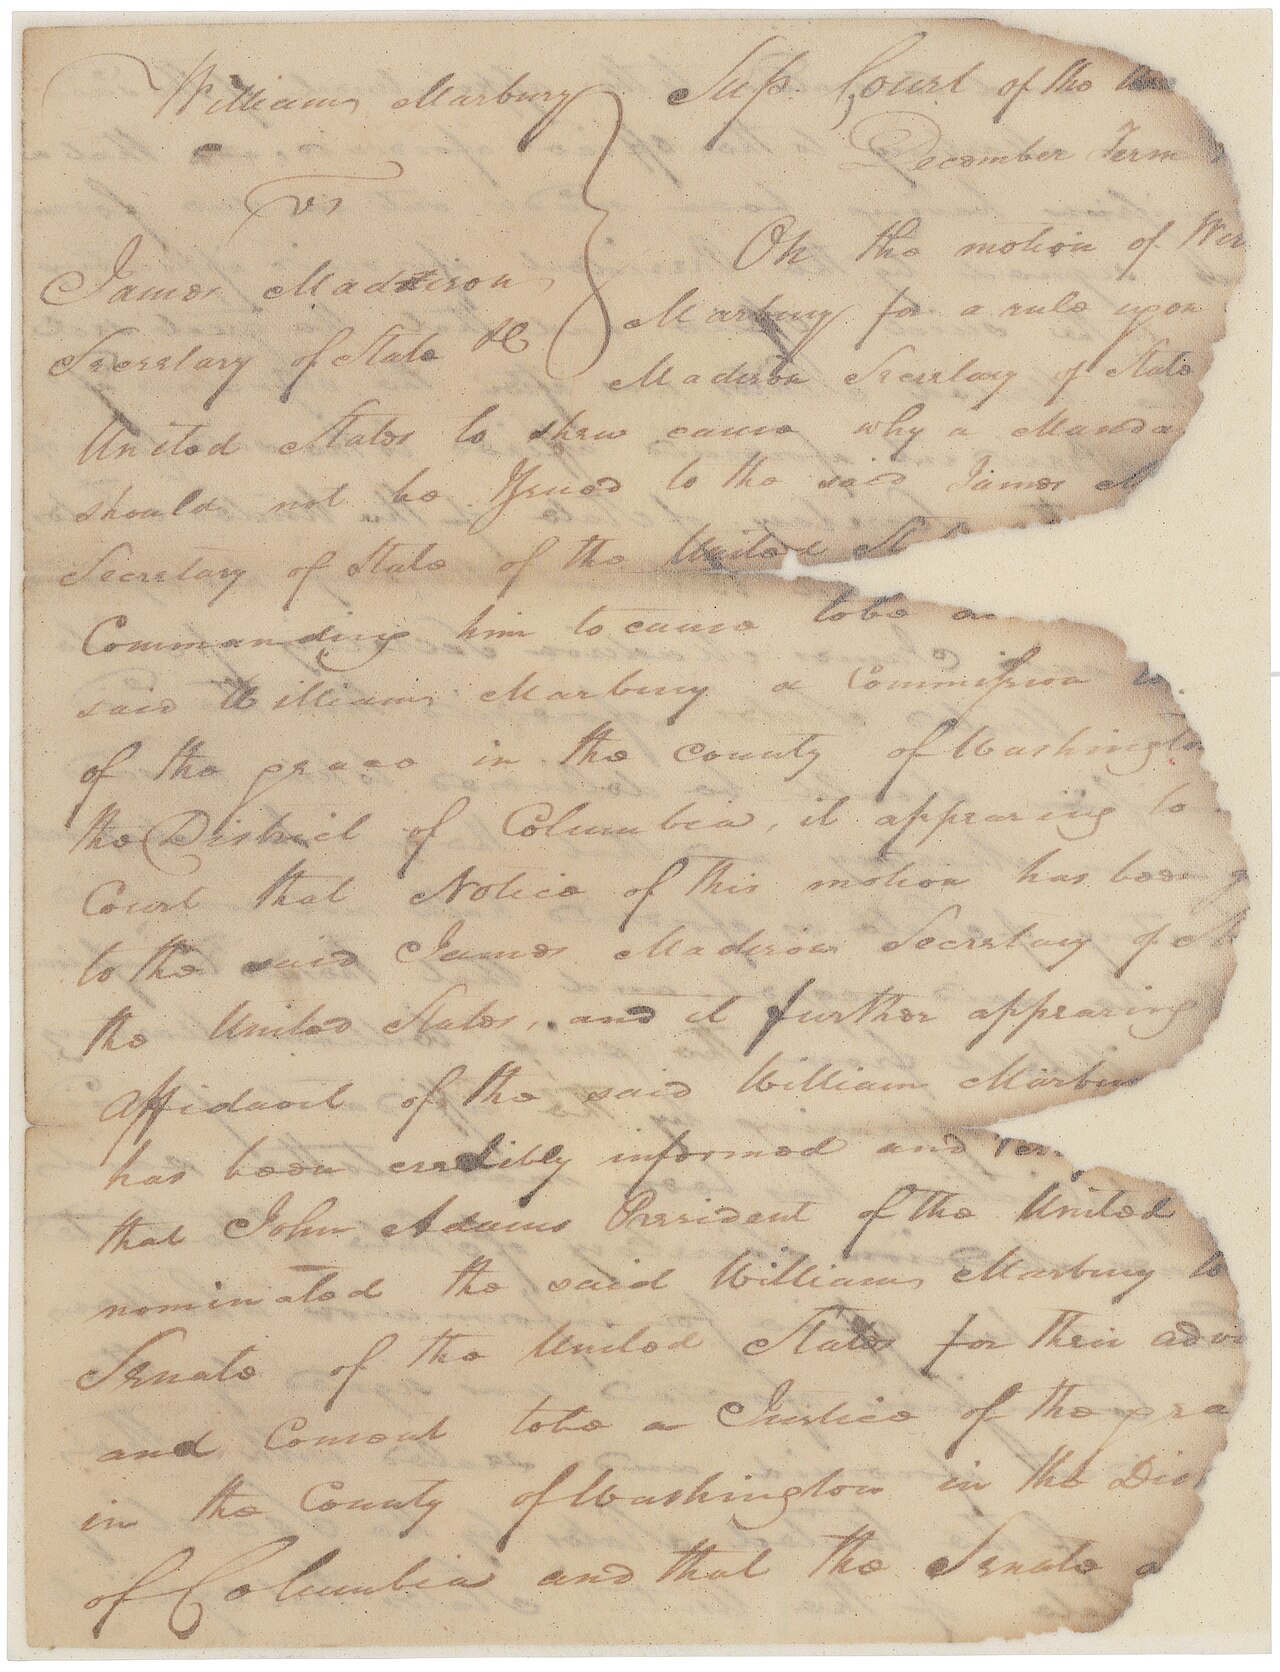 William Marbury
vs
James Maddison
Secretary of State &c
Sup. Court of the
December Term
On the motion of
Marbury for a rule upon
Madison Secretary of State
United States to shew cause why a Manda
should not be Issued to the said James M
Secretary of State of the United St
Commanding him to cause to be
said William Marbury a Commission
of the peace in the county of Washington
the District of Columbia, it appearing to
Court that Notice of this motion has been g
to the said James Madison Secretary of St
the United States, and it further appearing
Affidavit of the said William Marbu
has been credibly informed and
that John Adams President of the United
nominated the said William Marbury to
Senate of the United States for their advi
and Consent to be a Justice of the pea
in the County of Washington in the Dis
of Columbia and that the Senate a